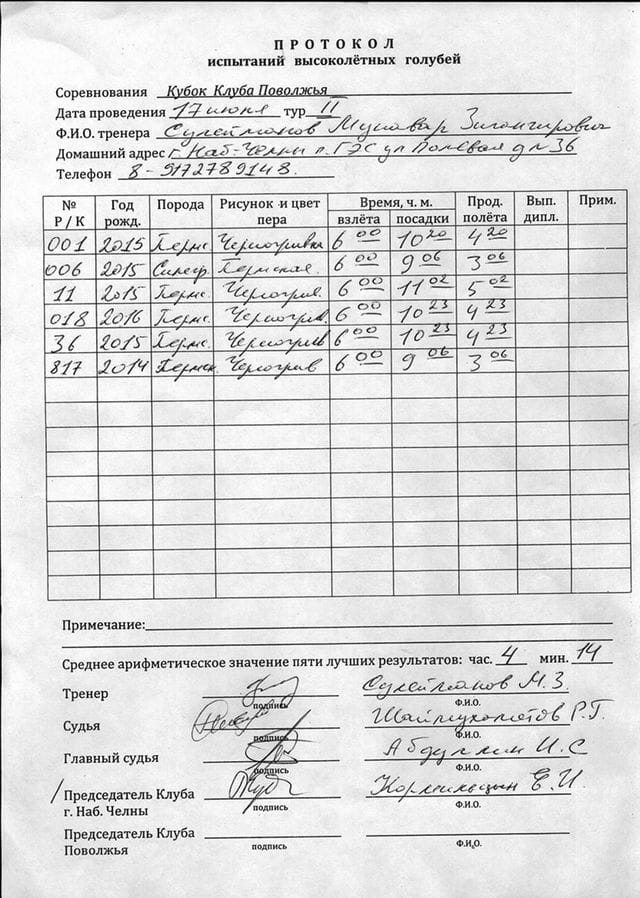 ПРОТОКОЛ
испытаний высоколётных голубей
Соревнования Кубок Клуба Поволжья
Дата проведения 17 июня тур II
Ф.И.О. тренера Сулейманов Мунавар Зигангирович
Домашний адрес г. Наб-Челны п. ГЭС ул Полевая д 36
Телефон 8-9172789148.
№ Р / К Год рожд. Порода Рисунок и цвет пера Время, ч. м. взлёта посадки Прод. полёта Вып. дипл. Прим.
001 2015 Пермс. Черногривый 6 00 10 20 4 20
006 2015 Пермская. 6 00 9 06 3 06
11 2015 Пермс. Черногрив. 6 00 11 02 5 02
018 2016 Пермс. Черногрив. 6 00 10 23 4 23
36 2015 Пермс. Черногрив 6 00 10 23 4 23
817 2014 Пермск. Черногрив 6 00 9 06 3 06
Примечание:
Среднее арифметическое значение пяти лучших результатов: час. 4 мин. 14
Тренер Сулейманов М.З.
подпись Ф.И.О.
Судья Шаймухаметов Р.Г.
подпись Ф.И.О.
Главный судья Абдуллин И.С
подпись Ф.И.О.
/ Председатель Клуба Е.И.
г. Наб. Челны подпись Ф.И.О.
Председатель Клуба
Поволжья подпись Ф.И.О.